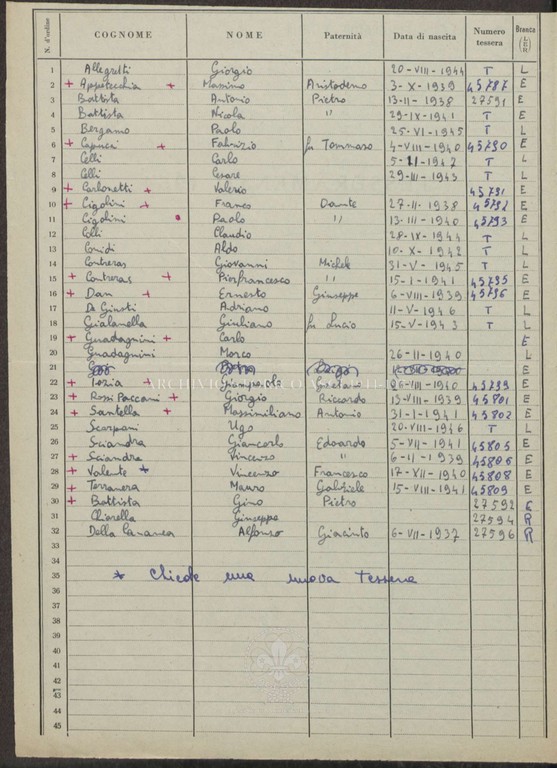 N. d'ordine COGNOME NOME Paternità Data di nascita Numero tessera Branca (L E R)
1 Allegretti Giorgio 20-VIII-1944 T L
2 + Appetecchia + Massimo Aristodemo 3-X-1939 45787 E
3 Battista Antonio Pietro 13-11-1938 27591 E
4 Battista Nicola " 29-IX-1941 T E
5 Bergamo Paolo 25-VI-1945 T L
6 + Capucci + Fabrizio fu Tommaso 4-VIII-1940 45790 E
7 Celli Carlo T L
8 Celli Cesare 29-III-1943 T L
9 + Carlonetti + Valerio 45791 E
10 + Cigolini + Franco Dante 27-II-1938 45792 E
11 Cigolini Paolo " 13-III-1940 45793 E
12 Colli Claudio 28-IX-1944 T L
13 Aldo 10-X-1942 T L
14 Contreras Giovanni Michele 31-V-1945 T L
15 + Contreras + Pierfrancesco " 15-I-1941 45795 E
16 + Dan + Ernesto Giuseppe 6-VIII-1939 45796 E
17 De Giusti Adriano 11-V-1946 T L
18 Gialanella Giuliano fu Lucio 15-V-1943 T L
19 + Guadagnini + Carlo E
20 Guadagnini Marco 26-11-1940 L
21 E
22 + Iezia + Giampaolo -1940 45799 E
23 + Rossi Paccani + Giorgio Riccardo 13-VIII-1939 45801 E
24 + Santella + Massimiliano Antonio 31-1-1941 45802 E
25 Scarponi Ugo 20-VIII-1946 T L
26 Sciandra Giancarlo Edoardo 5-VII-1941 45805 E
27 + Sciandra Vincenzo " 6-11-1939 45806 E
28 + Valente * Vincenzo Francesco 17-XII-1940 45808 E
29 + Terranera Mauro Gabriele 15-VIII-1941 45809 E
30 + Battista Gino Pietro 27592
31 Chiarella Giuseppe 27594 R
32 Della Cananea Alfonso Giacinto 6-VII-1937 27596 R
33
34
35 * Chiede una nuova Tessera
36
37
38
39
40
41
42
43
44
45